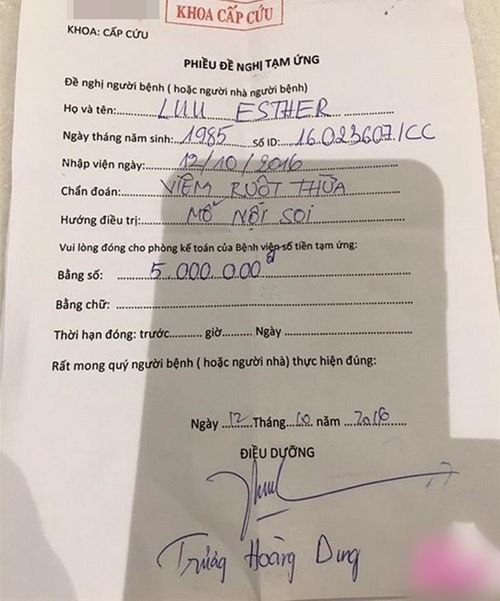 KHOA CẤP CỨU
KHOA: CẤP CỨU
PHIẾU ĐỀ NGHỊ TẠM ỨNG
Đề nghị người bệnh ( hoặc người nhà người bệnh)
Họ và tên: LƯU ESTHER
Ngày tháng năm sinh: 1985 Số ID: 16.023607/CC
Nhập viện ngày: 12/10/2016
Chẩn đoán: VIÊM RUỘT THỪA
Hướng điều trị: MỔ NỘI SOI
Vui lòng đóng cho phòng kế toán của Bệnh viện số tiền tạm ứng:
Bằng số: 5.000.000đ
Bằng chữ:
Thời hạn đóng: trước.......... giờ.......... Ngày ..........
Rất mong quý người bệnh ( hoặc người nhà) thực hiện đúng:
Ngày 12 Tháng 10 năm 2016
ĐIỀU DƯỠNG
Trương Hoàng Dung